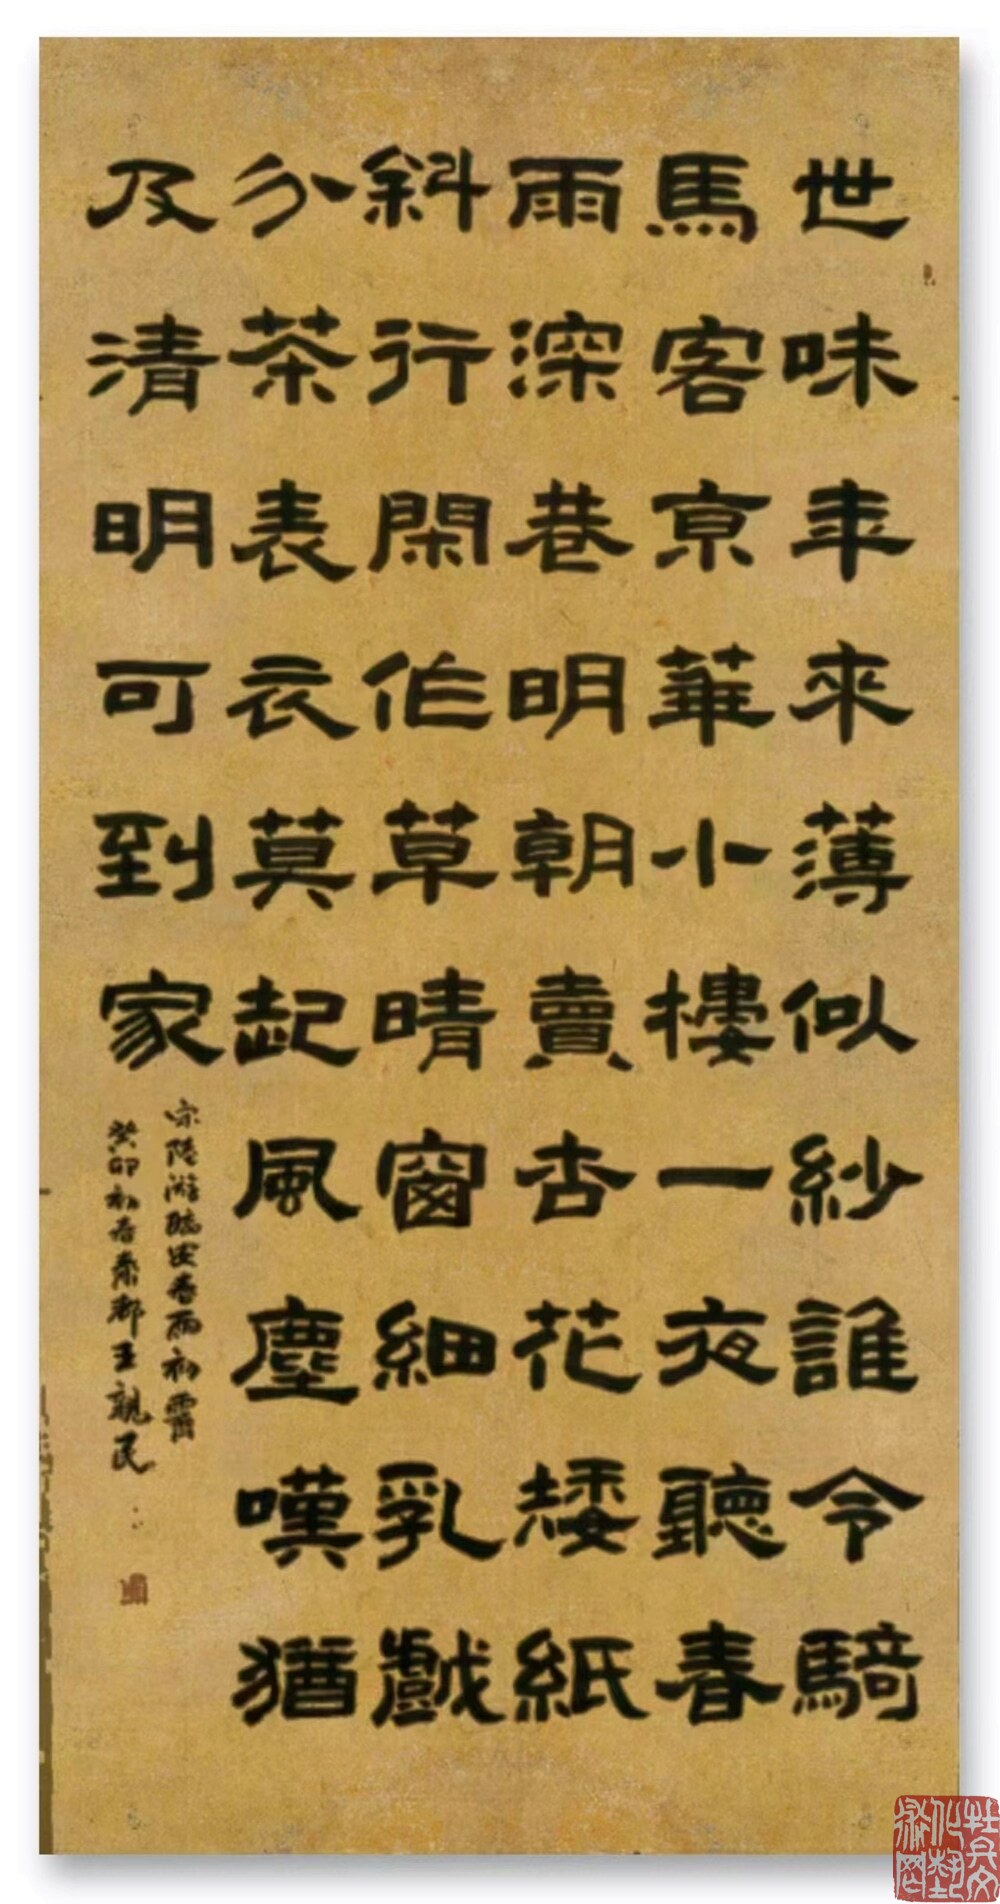 世味年來薄似紗誰令騎
馬客亰華小樓一夜聽春
雨深巷明朝賣杏花矮紙
斜行閑作草晴窗細乳戲
分茶表衣莫起風塵嘆猶
及清明可到家
宋陸游臨安春雨初霽
癸卯初春秦都王親民